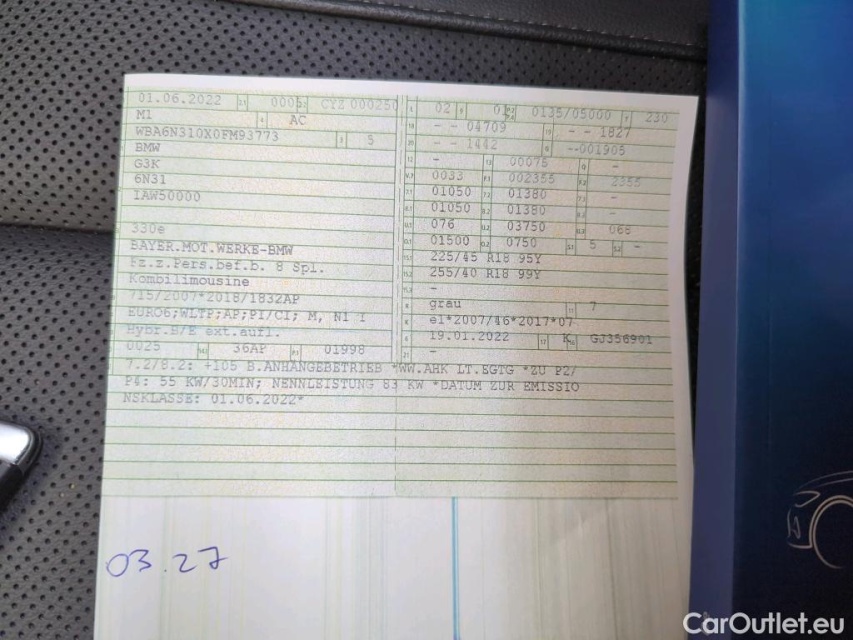 01.06.2022 2.1 0005 2.2 CYZ 000250
M1 4 AC
WBA6N310X0FM93773 3 5
BMW
G3K
6N31
1AW50000
330e
BAYER.MOT.WERKE-BMW
Fz.z.Pers.bef.b. 8 Spl.
Kombilimousine
715/2007*2018/1832AP
EURO6;WLTP;AP;PI/CI; M, N1 I
Hybr.B/E ext.aufl.
0025 36AP 01998
02 01 0135/05000 230
- - 04709 - - 1827
- - 1442 --001905
- 00075 -
0033 002355 2355
01050 01380 -
01050 01380 -
076 03750 068
01500 0750 5 -
225/45 R18 95Y
255/40 R18 99Y
-
grau 7
e1*2007/46*2017*07
19.01.2022 K GJ356901
-
7.2/8.2: +105 B.ANHANGEBETRIEB *WW.AHK LT.EGTG *ZU P2/
P4: 55 KW/30MIN; NENNLEISTUNG 83 KW *DATUM ZUR EMISSIO
NSKLASSE: 01.06.2022*
03.27
CarOutlet.eu